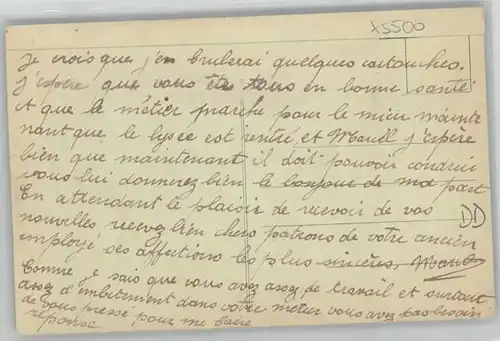 x5500
Je crois que j'en brulerai quelques cartouches.
J'espère que vous êtes tous en bonne santé
et que le métier marche pour le mieu mainte
nant que le lycée est rentré, et Marcell j'espère
bien que maintenant il doit pouvoir conduire
vous lui donnerez bien le bonjour de ma part
En attendant le plaisir de recevoir de vos
nouvelles recevez bien chers patrons de votre ancien
employé ses affections les plus sincères,
DD
Comme je sais que vous avez assez de travail et surtout
assez d'embêtement dans votre métier vous avez pas besoin
de vous pressé pour me faire
réponse